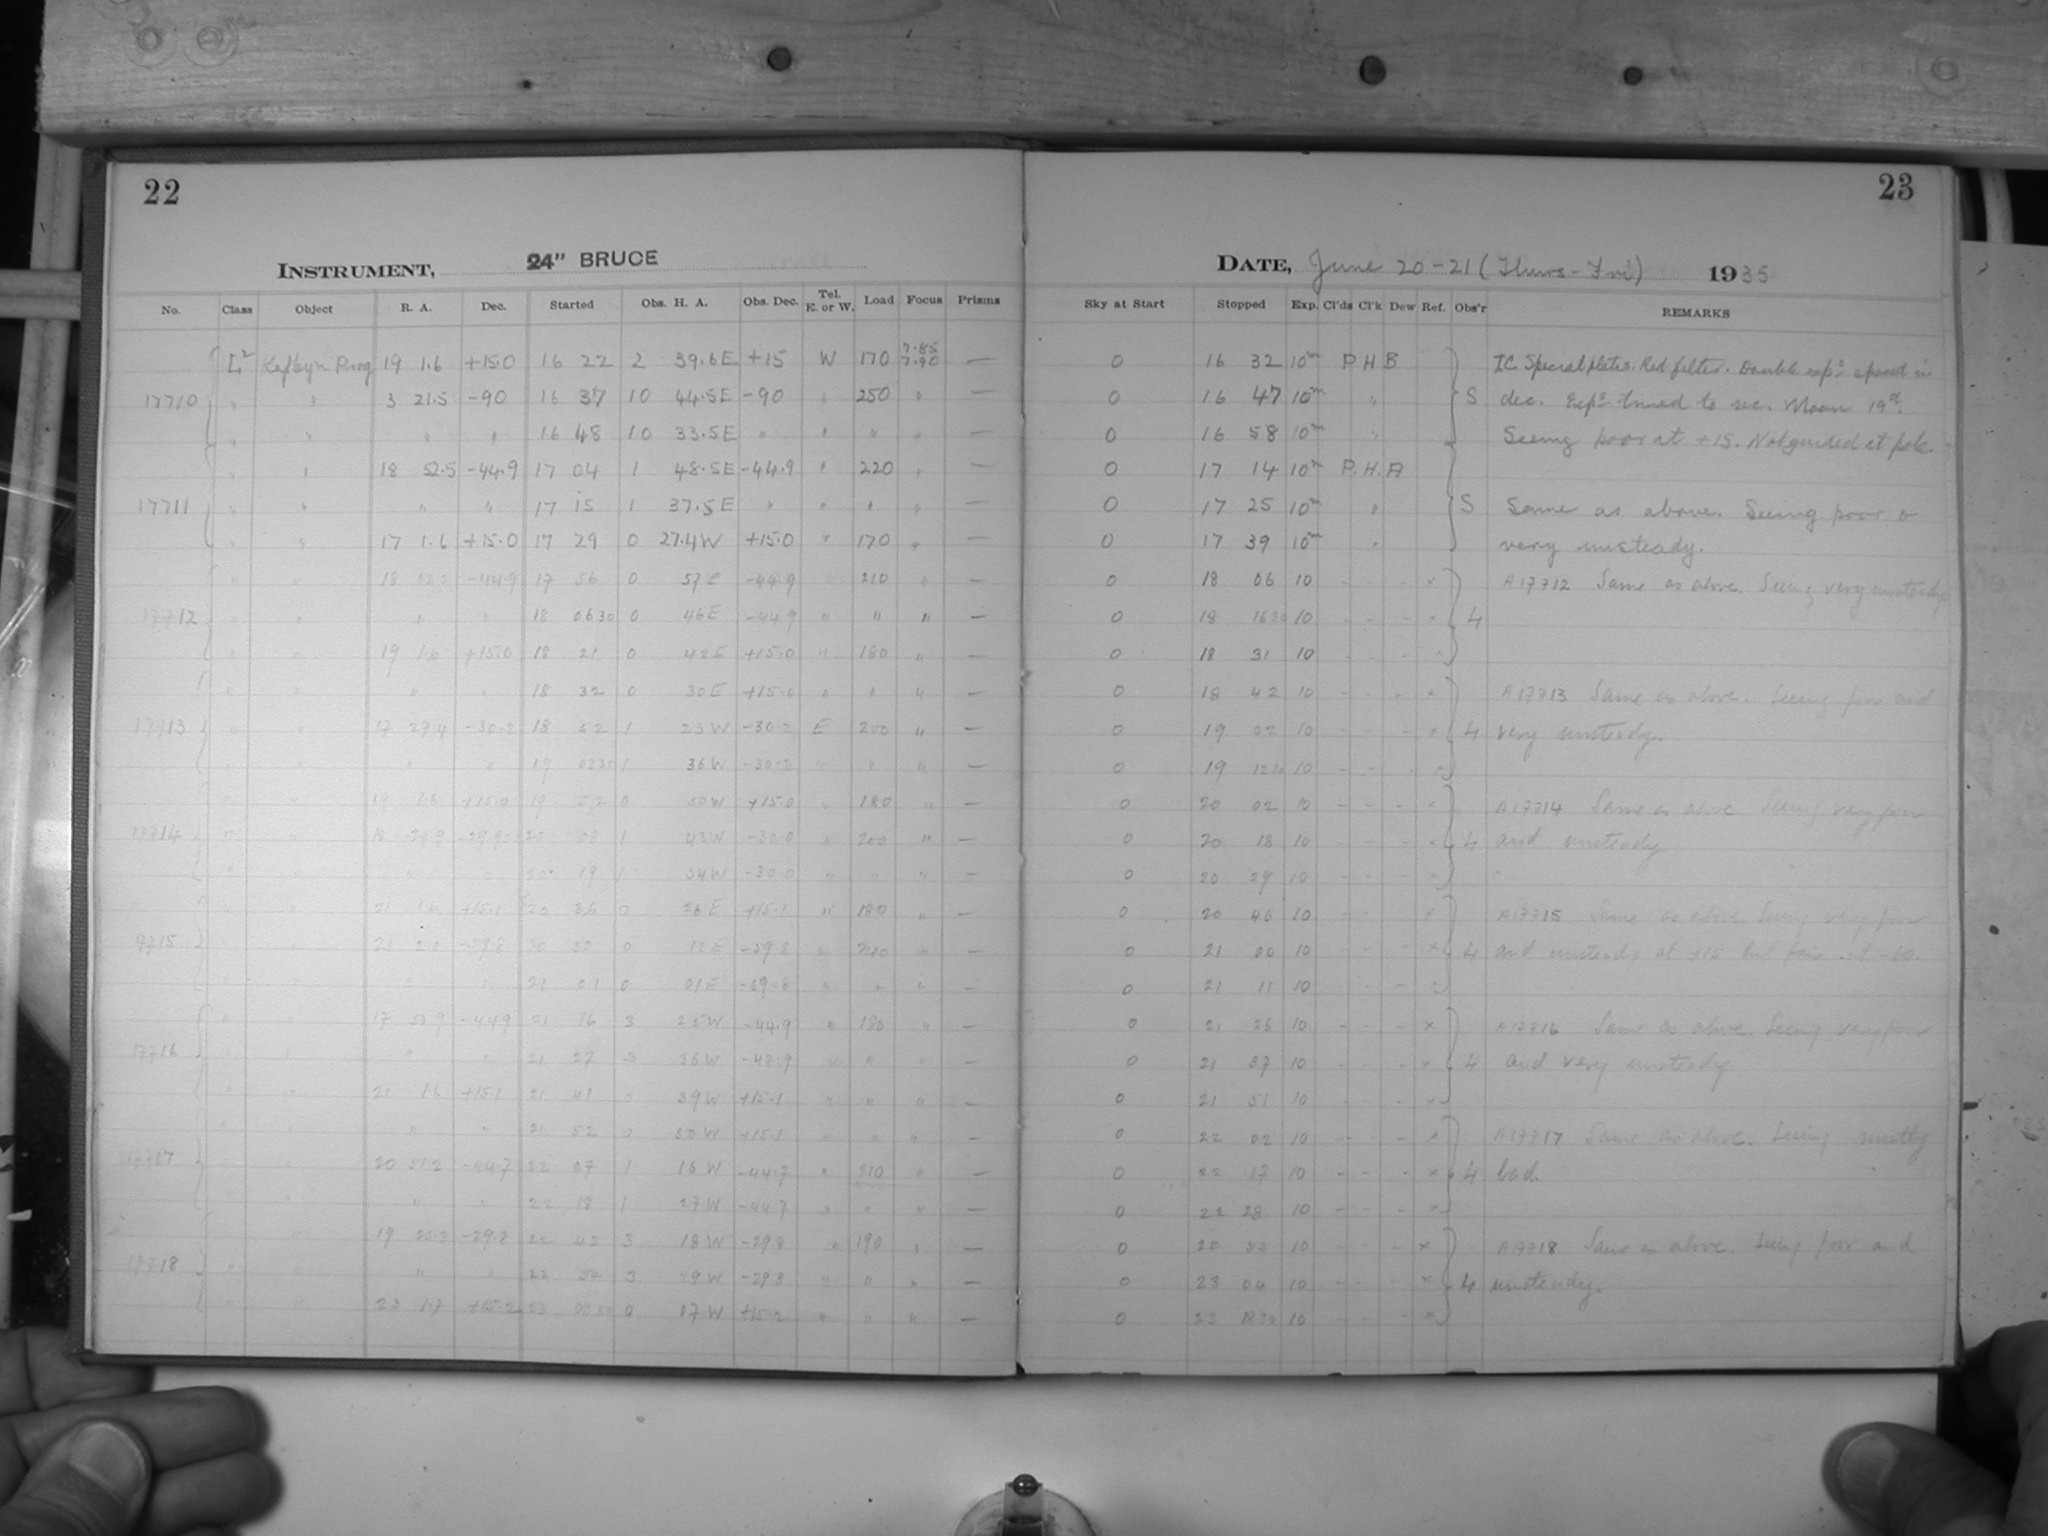 22
23
INSTRUMENT, 24" BRUCE
DATE, June 20-21 (Thurs-Fri) 1935
No. Class Object R. A. Dec. Started Obs. H. A. Obs. Dec. Tel. E. or W. Load Focus Prisms Sky at Start Stopped Exp. Cl'ds Cl'k Dew Ref. Obs'r REMARKS
19 1.6 +15.0 16 22 2 39.6E +15 W 170 7.85 7.90 — 0 16 32 10m P H B IC Special plates. Red filter. Double exps spaced in
17710 " " 3 21.5 -90 16 37 10 44.5E -90 " 250 " — 0 16 47 10m " S dec. Exps timed to sec. Moon 19d.
" " " " 16 48 10 33.5E " " " " — 0 16 58 10m " Seeing poor at +15. Not guided at pole.
" " 18 52.5 -44.9 17 04 1 48.5E -44.9 " 220 " — 0 17 14 10m P.H.A
17711 " " " " 17 15 1 37.5E " " " " — 0 17 25 10m " S Same as above. Seeing poor &
" " 17 1.6 +15.0 17 29 0 27.4W +15.0 " 170 " — 0 17 39 10m " very unsteady.
" " 18 -44.9 17 56 0 57E -44.9 " 210 " — 0 18 06 10 - - - x A17712 Same as above. Seeing very unsteady
17712 " " " " 18 0630 0 46E -44.9 " " " — 0 18 1630 10 - - - x 4
" " 19 1.6 +15.0 18 21 0 42E +15.0 " 180 " — 0 18 31 10 - - - x
" " " " 18 32 0 30E +15.0 " " " — 0 18 42 10 - - - x A17713 Same as above. Seeing poor and
17713 " " 17 27.4 -30.2 18 52 1 25W -30.2 E 200 " — 0 19 02 10 - - - x 4 very unsteady.
" " " " 19 0230 1 36W -30.2 " " " — 0 19 1230 10 - - - x
" " 19 1.6 +15.0 19 52 0 50W +15.0 " 180 " — 0 20 02 10 - - - x A17714 Same as above Seeing very poor
17714 " " 18 -29.95 20 08 1 43W -30.0 " 200 " — 0 20 18 10 - - - x 4 and unsteady
" " " " 20 19 1 54W -30.0 " " " — 0 20 29 10 - - -
" " 21 1.6 +15.1 20 36 0 26E +15.1 " 180 " — 0 20 46 10 - - - x A17715 Same as above. Seeing very poor
17715 " " 21 -59.8 20 50 0 12E -59.8 " " — 0 21 00 10 - - - x 4 and unsteady at +15 but fair at -60.
" " " " 21 01 0 01E -59.8 " " " — 0 21 11 10 - - -
" " 17 -44.9 21 16 3 25W -44.9 " 190 " — 0 21 26 10 - - - x A17716 Same as above. Seeing very poor
17716 " " " " 21 27 3 36W " " " — 0 21 37 10 - - - x 4 and very unsteady
" " 21 1.6 +15.1 21 41 0 39W +15.1 " " " — 0 21 51 10 - - -
" " " " 21 52 0 50W +15.1 " " " — 0 22 02 10 - - - x A17717 Same as above. Seeing mostly
17717 " " 20 51.2 -44.7 22 07 1 16W -44.7 " 210 " — 0 22 17 10 - - - x 4 bad.
" " " " 22 18 1 27W -44.7 " " " — 0 22 28 10 - - - x
" " 19 25.3 -29.8 22 43 3 18W -29.8 " 190 " — 0 22 53 10 - - - x A17718 Same as above. Seeing poor and
17718 " " " " 22 54 3 29W -29.8 " " " — 0 23 04 10 - - - x 4 unsteady.
" " 23 1.7 +15.2 23 0 07W +15.2 " " " — 0 23 10 - - - x